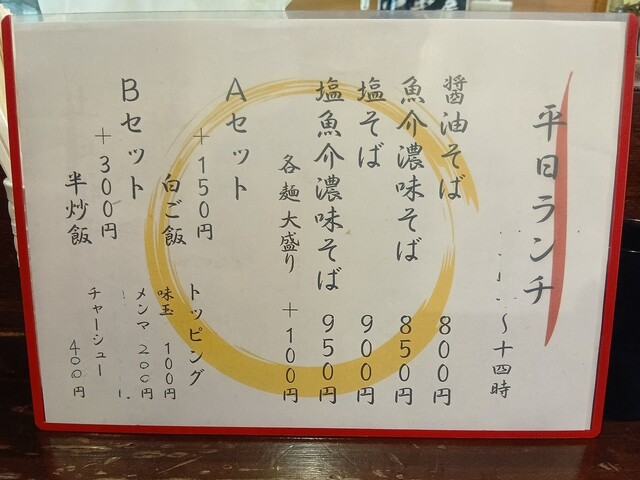 平日ランチ
〜十四時
醤油そば 800円
魚介濃味そば 850円
塩そば 900円
塩魚介濃味そば 950円
各麺大盛り +100円
Aセット
+150円
白ご飯
Bセット
+300円
半炒飯
トッピング
味玉 100円
メンマ 200円
チャーシュー 400円